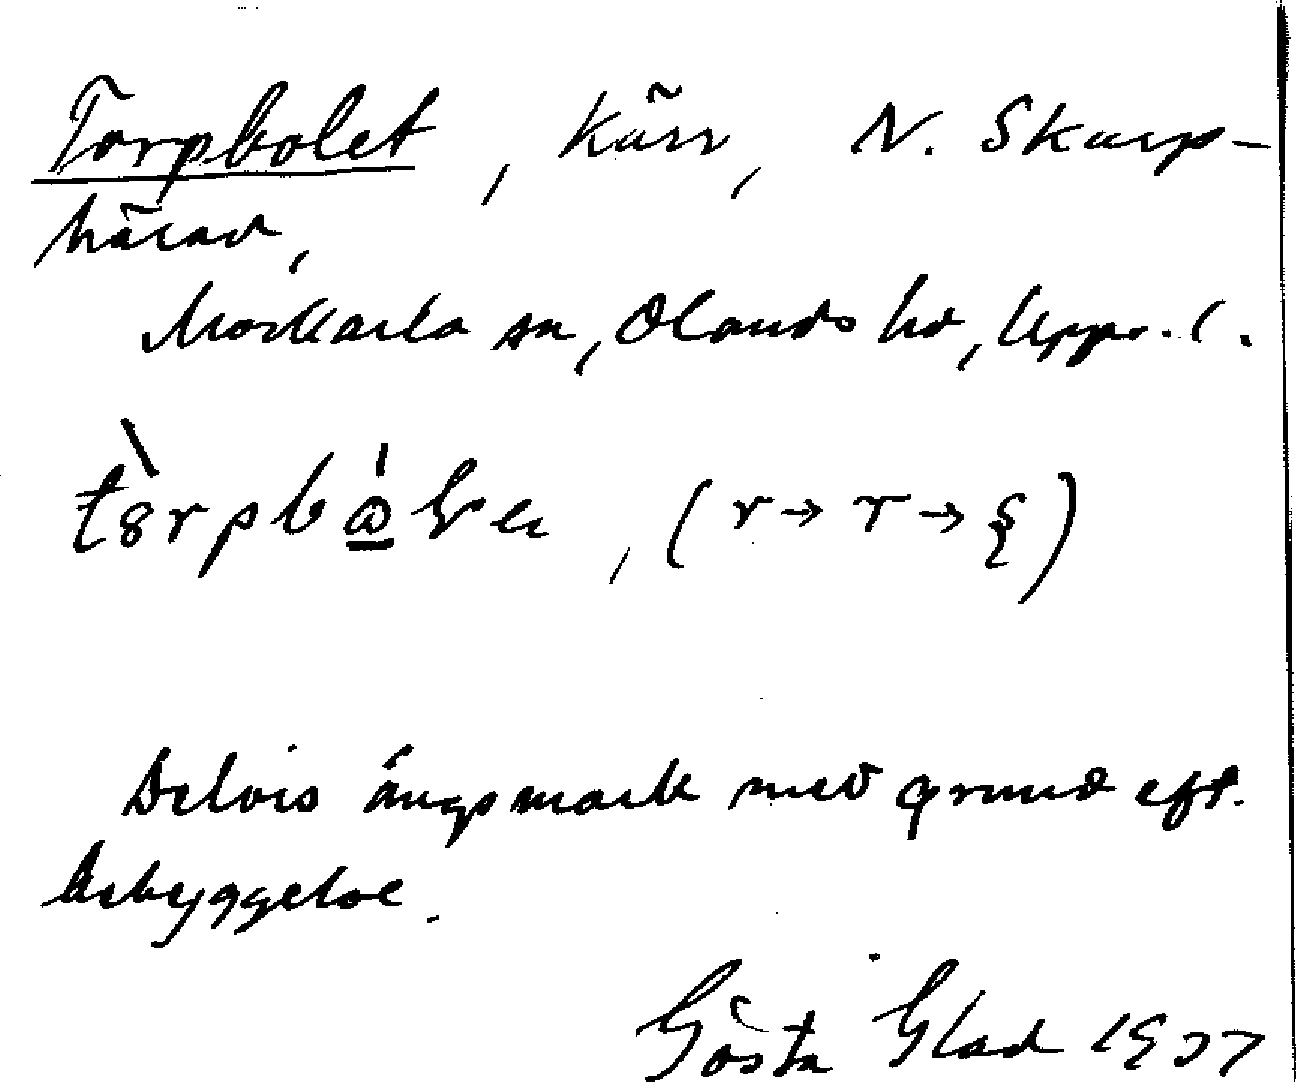 Torpbolet, kärr, N. Skarp-
härad,
Morkarla sn, Olands hd, Upps. l.
(r → r → ʂ)
Delvis ängsmark med grund eft.
bebyggelse.
Gösta Glad 1937